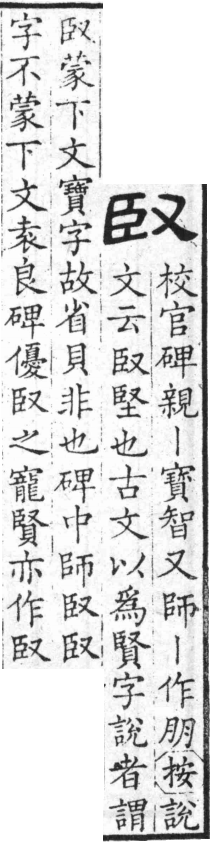 臤
校官碑親丨寶智又師丨作朋按說
文云臤堅也古文以爲賢字說者謂
臤蒙下文寶字故省貝非也碑中師臤臤
字不蒙下文袁良碑優臤之寵賢亦作臤